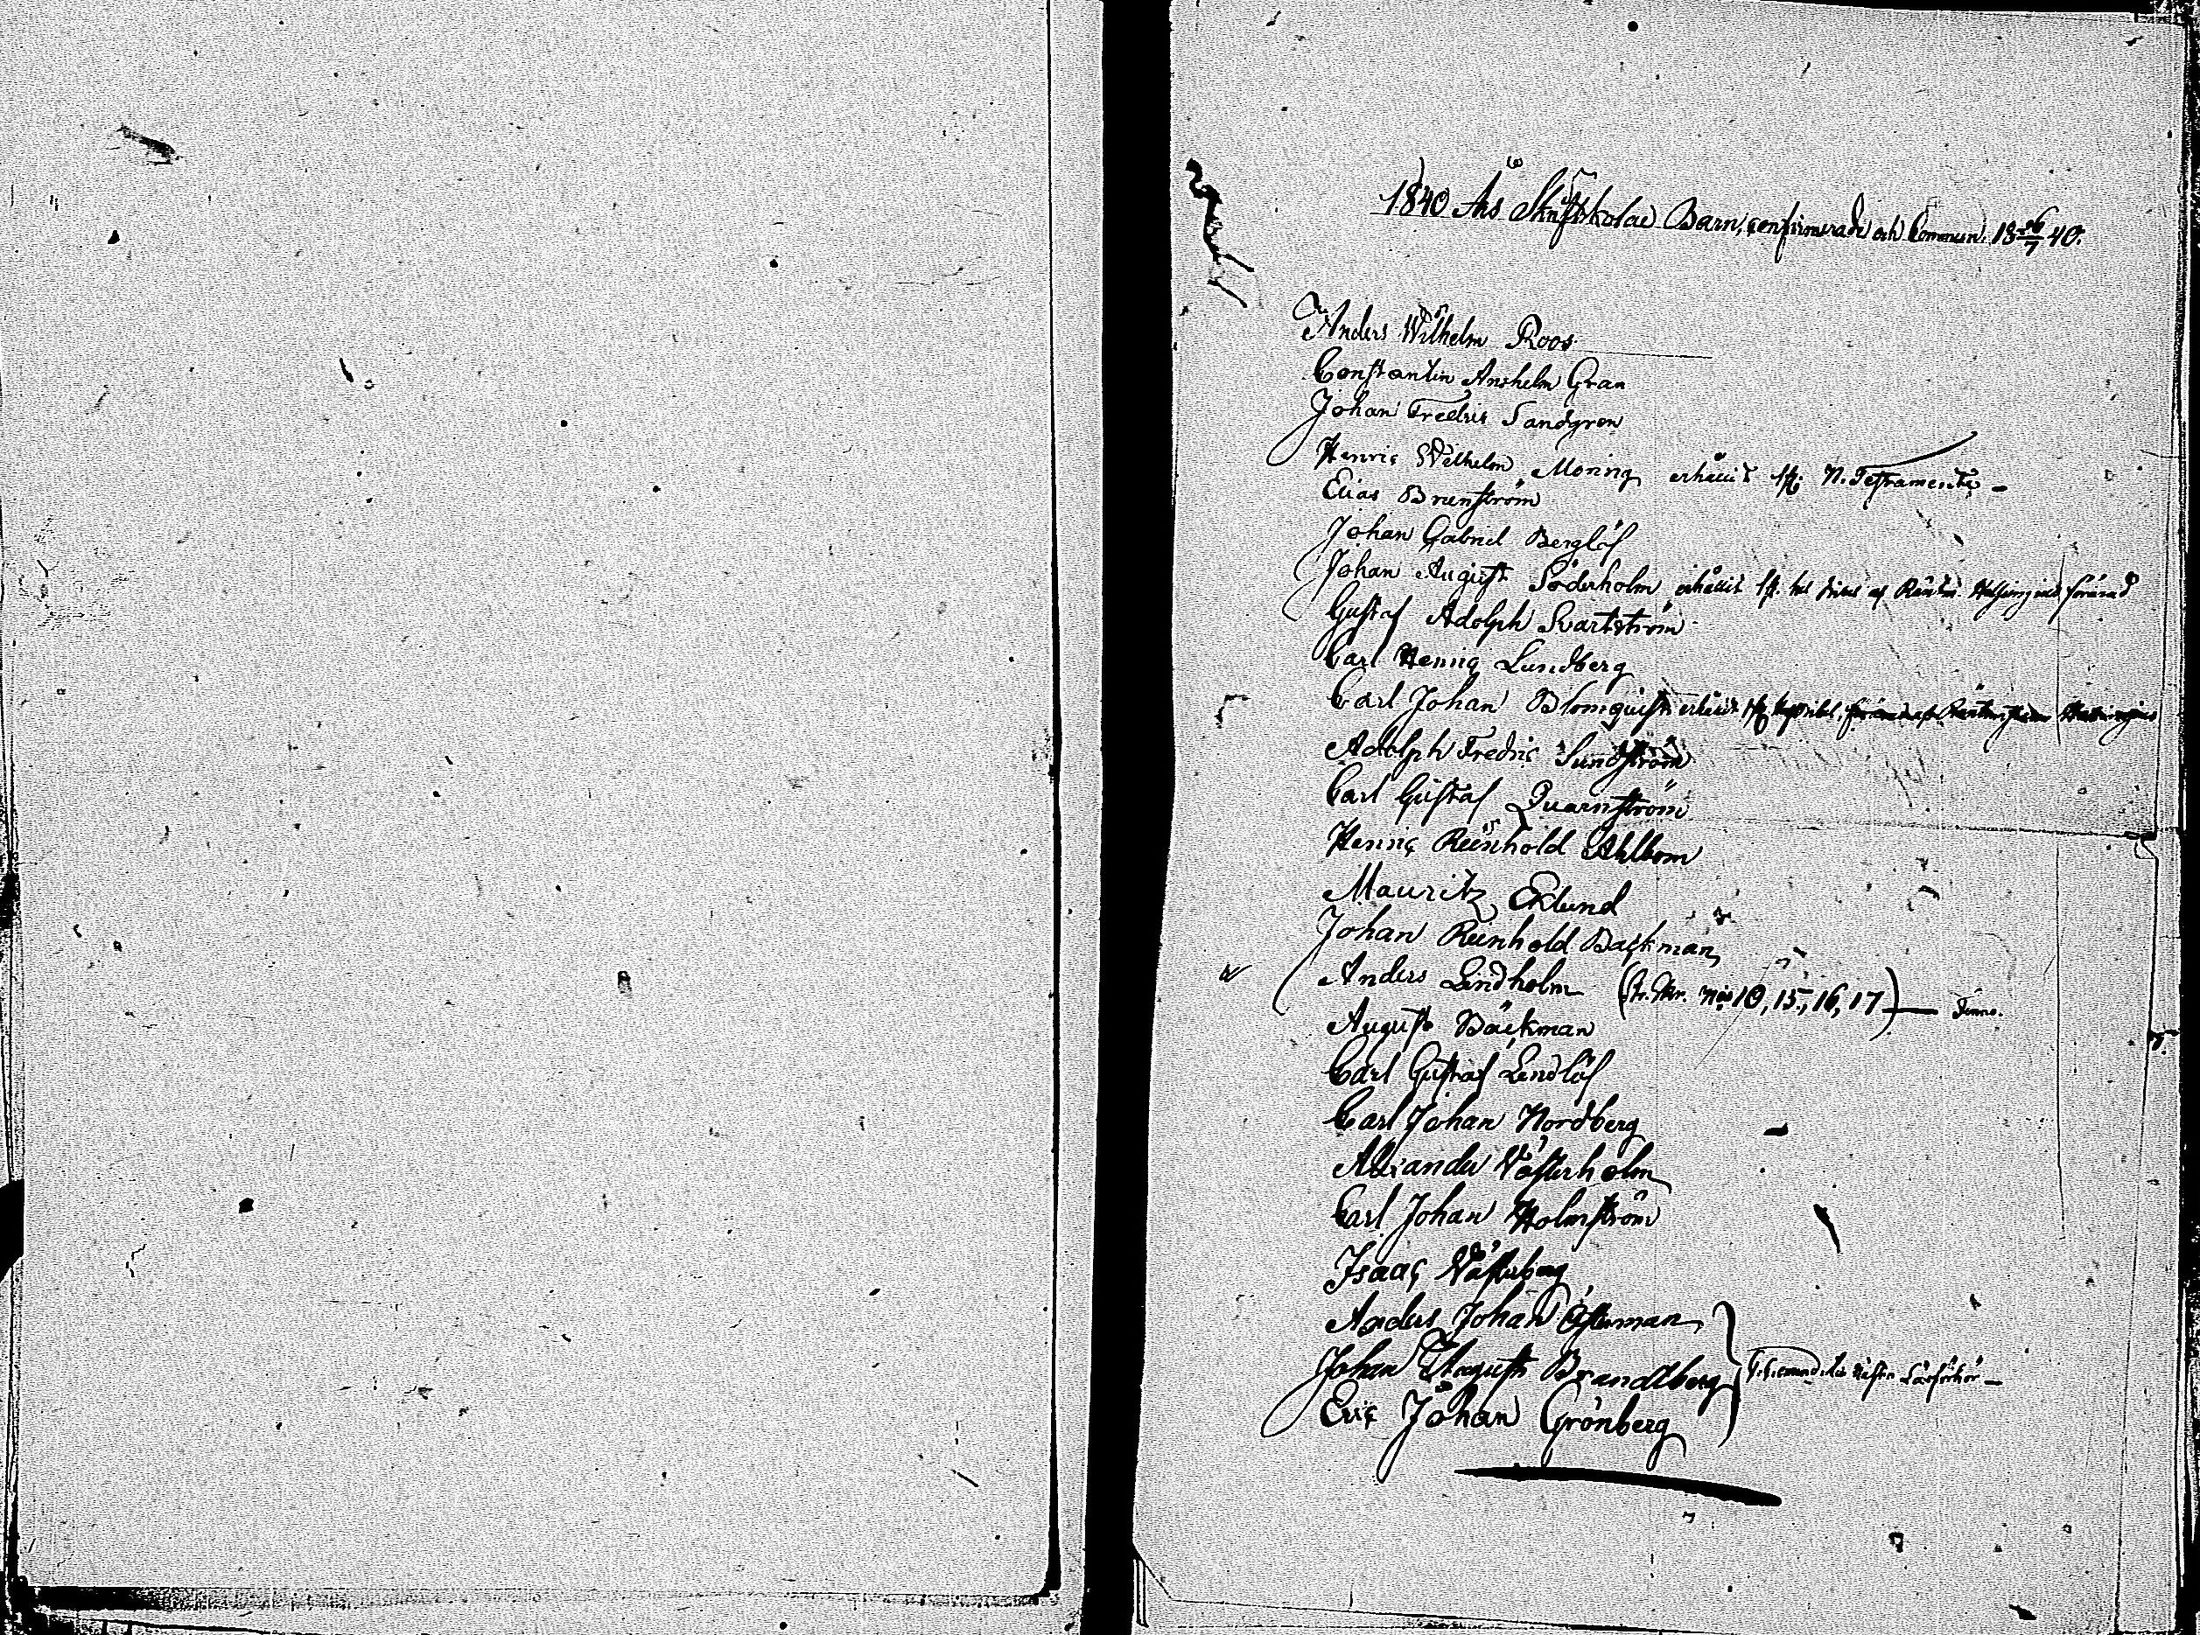 1840 Års Skriftskolae Barn, confirmerade och Commun. 18 26/7 40.
Anders Wilhelm Roos
Constantin Anshelm Gran
Johan Fredric Sandgren
Henric Wilhelm Moring erhållit N. Testamente
Elias Brunström
Johan Gabriel Berglöf
Johan August Söderholm erhållit af
Gustaf Adolph Svartström
Carl Henric Lundberg
Carl Johan Blomquist erhållit
Adolph Fredric Sundström
Carl Gustaf Quarnström
Henric Reinhold Ahlbom
Mauritz Eklund
Johan Reinhold Backman
Anders Lindholm 10, 15, 16, 17)
August Bäckman
Carl Gustaf Lindlöf
Carl Johan Nordberg
Alexander Västerholm
Carl Johan Holmström
Isaac Västerberg
Anders Johan Österman
Johan August Brandtberg Läsförhör
Eric Johan Grönberg